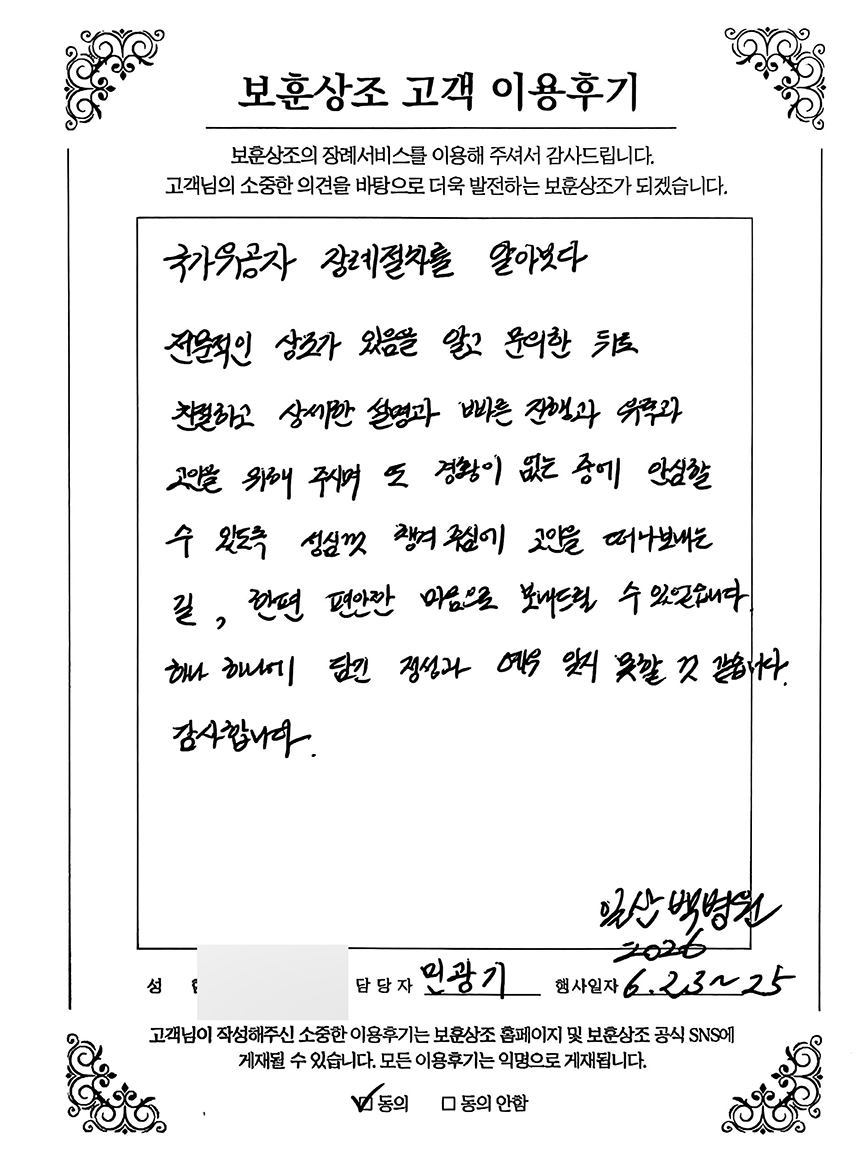 보훈상조 고객 이용후기
보훈상조의 장례서비스를 이용해 주셔서 감사드립니다.
고객님의 소중한 의견을 바탕으로 더욱 발전하는 보훈상조가 되겠습니다.
국가유공자 장례절차를 알아보다
전문적인 상조가 있음을 알고 문의한 뒤로
친절하고 상세한 설명과 빠른 진행과 유족과
고인을 위해 주시며 또 경황이 없는 중에 안심할
수 있도록 성심껏 챙겨 주심에 고인을 떠나보내는
길, 한편 편안한 마음으로 보내드릴 수 있었습니다.
하나 하나에 담긴 정성과 예우 잊지 못할 것 같습니다.
감사합니다.
일산 백병원
2026
성 담당자 민광기 행사일자 6.23~25
고객님이 작성해주신 소중한 이용후기는 보훈상조 홈페이지 및 보훈상조 공식 SNS에
게재될 수 있습니다. 모든 이용후기는 익명으로 게재됩니다.
동의 동의 안함